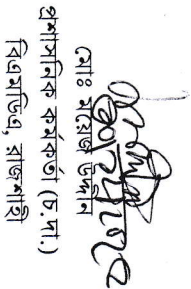 মোঃ উদ্দিন
প্রশাসনিক কর্মকর্তা (চ.দা.)
বিএমডিএ, রাজশাহী